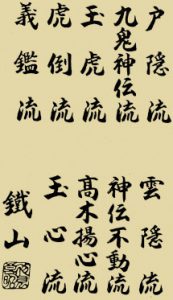 戸隠流
九鬼神伝流
玉虎流
虎倒流
義鑑流
雲隠流
神伝不動流
髙木揚心流
玉心流
鐵山